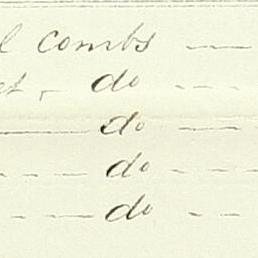 combs
do
do
do
do